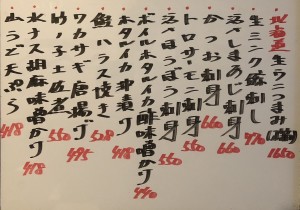 北海道 生ウニつまみ(塩) 1650
生ミンク鯨刺し 770
活〆しまあじ刺身 660
かつお刺身 660
トロサーモン刺身 550
活〆ほうぼう刺身 550
ボイルホタルイカ酢味噌がけ 440
ホタルイカ沖漬け 418
鮭ハラス焼き 528
ワカサギ唐揚げ 495
竹ノ子土佐煮 550
水ナス胡麻味噌がけ 418
山うど天ぷら 418